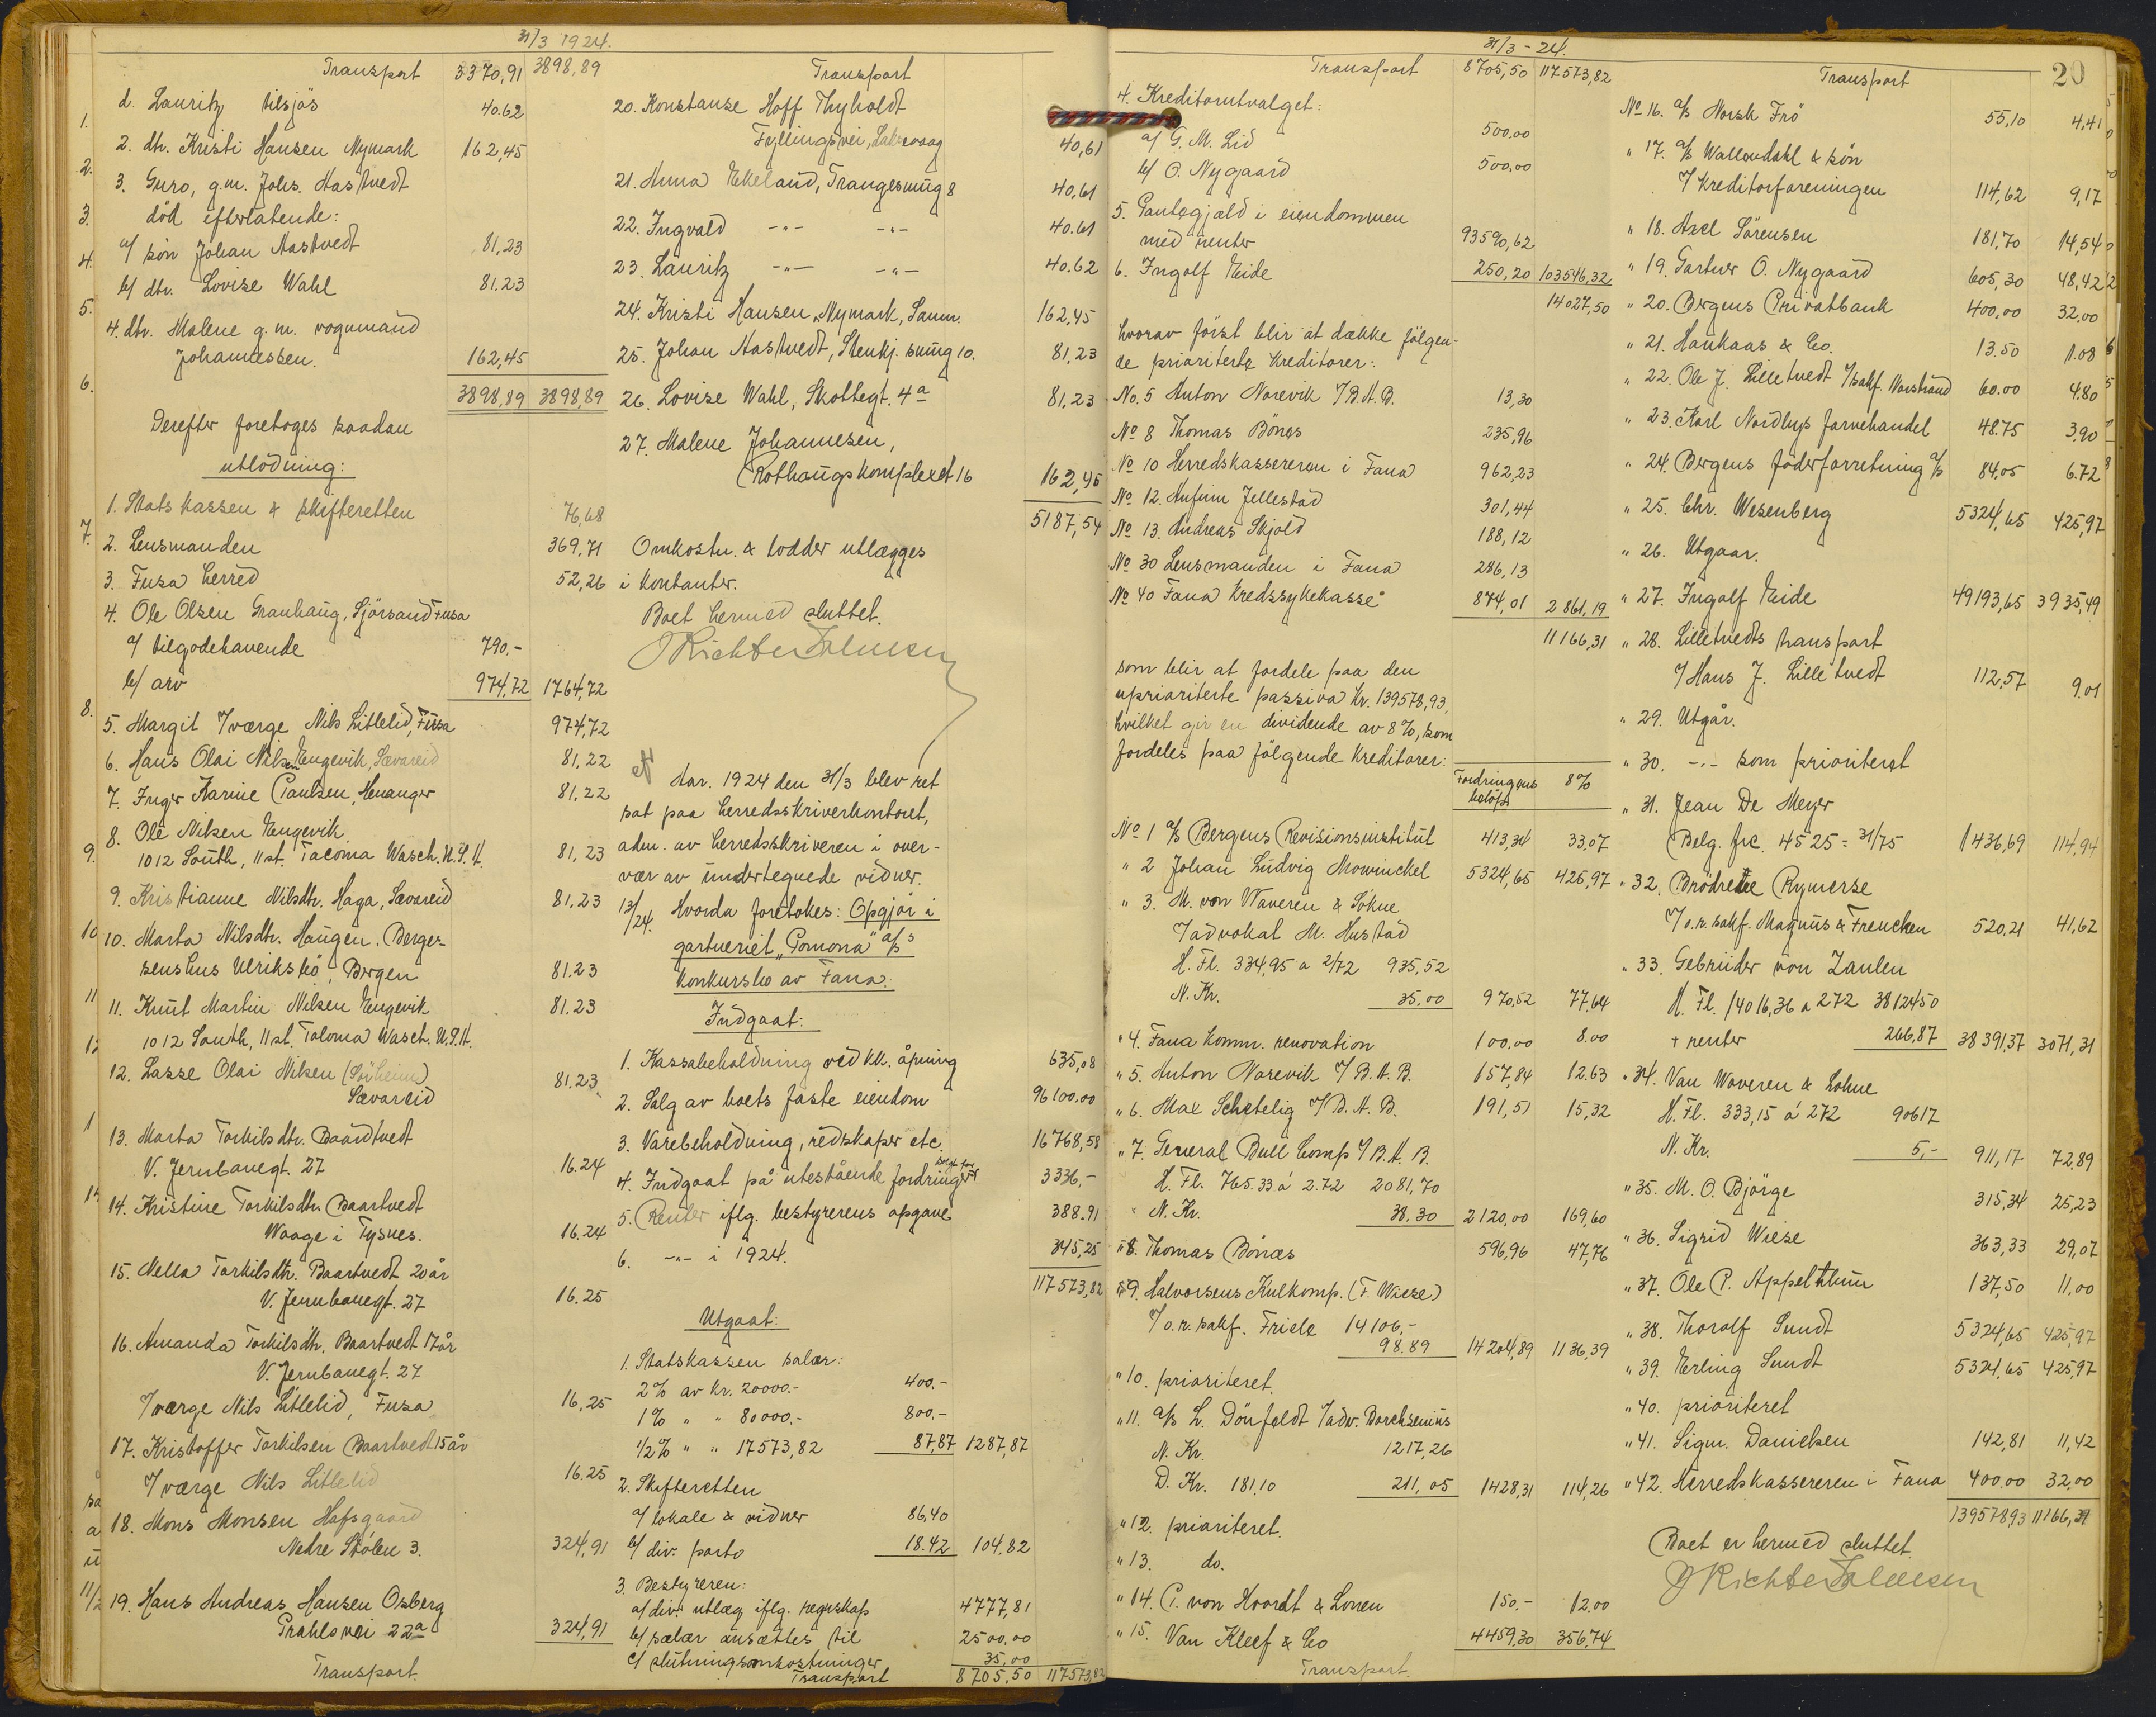 31/3 1924.
Transport 3370,91 3898,89
d. Lauritz tilsjös 40.62
2. dtr. Kristi Hansen Nymark 162,45
3. Guro, g.m. Johs. Hastvedt
död efterlatende:
a/ sön Johan Hastvedt 81,23
b/ dtr. Lovise Wahl 81.23
4. dtr. Malene g.m. vognmand
Johannessen. 162,45
3898,89 3898,89
Derefter foretoges saadan
utlodning:
1. Statskassen & skifteretten 76,68
2. Lensmanden 369,71
3. Fusa herred 52,26
4. Ole Olsen Granhaug, Sjörsand Fusa
a/ tilgodehavende 790.-
b/ arv 974,72 1764,72
5. Margit v/værge Nils Litlelid, Fusa 974,72
6. Hans Olai Nilsen Engevik, Sævareid 81,22
7. Inger Karine Paulsen, Henanger 81,22
8. Ole Nilsen Engevik
1012 South, 11 st. Tacoma Wasch. U.S.A. 81,23
9. Kristianne Nilsdtr. Haga, Sævareid 81,23
10. Marta Nilsdtr. Haugen. Berger-
senshus Ulriksbö, Bergen 81.23
11. Knut Martin Nilsen Engevik 81.23
1012 South, 11 st. Taloma Wasch. U.S.A.
12. Lasse Olai Nilsen (Solheim)
Sævareid 81.23
13. Marta Torkilsdtr. Baardtvedt
V. Jernbanegt. 27 16.24
14. Kristine Torkilsdtr. Baartvedt
Waage i Tysnes. 16.24
15. Nella Torkilsdtr. Baartvedt 20 år
V. Jernbanegt. 27 16.25
16. Amanda Torkilsdtr. Baartvedt 17 år
V. Jernbanegt. 27
v/værge Nils Litlelid, Fusa 16,25
17. Kristoffer Torkilsen Baartvedt 15 år
v/værge Nils Litlelid 16.25
18. Mons Monsen Hafsgaard
Nedre Stölen 3. 324,91
19. Hans Andreas Hansen Osberg
Prahlsvei 22a 324,91
Transport.
Transport
20. Konstanse Hoff Thyholdt
Fyllingsvei, Laksevaag 40,61
21. Anna Ekeland, Trangesmug 8 40,61
22. Ingvald -"- -"- 40.61
23. Lauritz -"- -"- 40.62
24. Kristi Hansen, Nymark, Samn. 162,45
25. Johan Hastvedt, Stenkj. smug 10. 81,23
26. Lovise Wahl, Skottegt. 4a 81,23
27. Malene Johannesen,
Rothaugskomplexet 16 162,45
5187,54
Omkostn. & lodder utlægges
i kontanter.
Boet hermed sluttet.
J Richter Salvesen
Aar. 1924 den 31/3 blev ret
sat paa herredsskriverkontoret,
adm. av herredsskriveren i over-
vær av undertegnede vidner.
13/24. Hvorda foretokes: Opgjør i
gartneriet "Pomona" a/s
konkursbo av Fana.
Indgaat:
1. Kassabeholdning ved kk. åpning 635,08
2. Salg av boets faste eiendom 96100.00
3. Varebeholdning, redskaper etc. 16768,58
4. Indgaat på utestående fordringer 3336,-
5. Renter iflg. bestyrerens opgave 388.91
6. -"- i 1924. 345,25
117573,82
Utgaat:
1. Statskassen salær:
2% av kr. 20000.- 400.-
1% " " 80000.- 800,-
1/2% " " 17573,82 87,87 1287,87
2. Skifteretten
a/ lokale & vidner 86,40
b/ div. porto 18.42 104,82
3. Bestyreren:
a/ div. utlæg iflg. regnskap 4777,81
b/ salær ansættes til 2500,00
c/ slutningsomkostninger 35,00
Transport 8705,50 117573,82
31/3-24.
20
Transport 8705,50 117573,82
4. Kreditorutvalget:
a/ G. M. Lid 500,00
b/ O. Nygaard 500,00
5. Pantegjæld i eiendommen
med renter 93590,62
6. Ingolf Eide 250,20 103546,32
14027,50
hvorav först blir at dække fölgen-
de prioriterte kreditorer:
No. 5 Anton Norevik v/ B.A.B. 13,30
No 8 Thomas Bönes 235,96
No 10 Herredskassereren i Fana 962,23
No 12. Anfinn Jellestad 301,44
No 13. Andreas Skjold 188,12
No 30 Lensmanden i Fana 286,13
No 40 Fana Kredssykekasse 874,01 2861,19
11166,31
som blir at fordele paa den
uprioriterte passiva Kr. 139578,93,
hvilket gir en dividende av 8%, som
fordeles paa fölgende kreditorer:
Fordringens belöp 8%
No 1 a/s Bergens Revisionsinstitut 413,34 33.07
" 2 Johan Ludvig Mowinckel 5324,65 425,97
" 3. M. von Waveren & Söhne
v/advokat M. Hustad
H. Fl. 334,95 a 2/72 935,52
N. Kr. 35,00 970,52 77.64
" 4. Fana komm. renovation 100.00 8.00
" 5. Anton Norevik v/ B.A.B. 157,84 12.63
" 6. Max Schetelig v/ B.A.B. 191,51 15,32
" 7. General Bull Comp v/ B.A.B.
H. Fl. 765.33 á 2.72 2081,70
N. Kr. 38.30 2120,00 169,60
" 8. Thomas Bönæs 596,96 47,76
" 9. Halvorsens Kulkomp. (F. Wiese)
v/ o.r. sakf. Friele 14106,-
98.89 14204,89 1136,39
" 10. prioriteret.
" 11. a/s L. Dönfeldt v/adv. Borchsenius
N. Kr. 1217,26
D. Kr. 181,10 211,05 1428,31 114,26
" 12. prioriteret.
" 13. do.
" 14. P. von Hoordt & Lonen 150.- 12.00
" 15. Van Kleef & Co 4459,30 356,74
Transport.
Transport
No 16. a/s Norsk Frö 55,10 4,41
" 17. a/s Wallendahl & sön
v/ Kreditorforeningen 114,62 9,17
" 18. Axel Sörensen 181,70 14,54
" 19. Gartner O. Nygaard 605,30 48,42
" 20. Bergens Privatbank 400,00 32.00
" 21. Haukaas & Co. 13.50 1.08
" 22. Ole J. Lilletvedt v/sakf. Norstrand 60.00 4.80
" 23. Karl Nordlys farvehandel 48.75 3.90
" 24. Bergens foderforretning a/s 84,05 6.72
" 25. Chr. Wesenberg 5324,65 425,97
" 26. Utgaar.
" 27. Ingolf Eide 49193,65 3935,49
" 28. Lilletvedts transport
v/ Hans J. Lilletvedt 112,57 9.01
" 29. Utgår.
" 30. -"- som prioritert
" 31. Jean De Meyer
Belg. frc. 4525 = 31/75 1436,69 114,94
" 32. Brödrene Rymerse
v/ o.r. sakf. Magnus & Frencken 520,21 41,62
" 33. Gebrüder von Zanten
H. Fl. 14016,36 a 272 3812450
+ renter 266,87 38391,37 3071,31
" 34. Van Waveren & Sohne
H. Fl. 333,15 á 272 90617
N. Kr. 5,- 911,17 72,89
" 35. M. O. Björge 315,34 25,23
" 36. Sigrid Wiese 363,33 29,07
" 37. Ole P. Appelthun 137,50 11,00
" 38. Thorolf Sundt 5324,65 425,97
" 39. Erling Sundt 5324,65 425,97
" 40. prioriteret
" 41. Sigm. Danielsen 142,81 11,42
" 42. Herredskassereren i Fana 400.00 32,00
139578,93 11166,31
Boet er hermed sluttet.
J Richter Salvesen